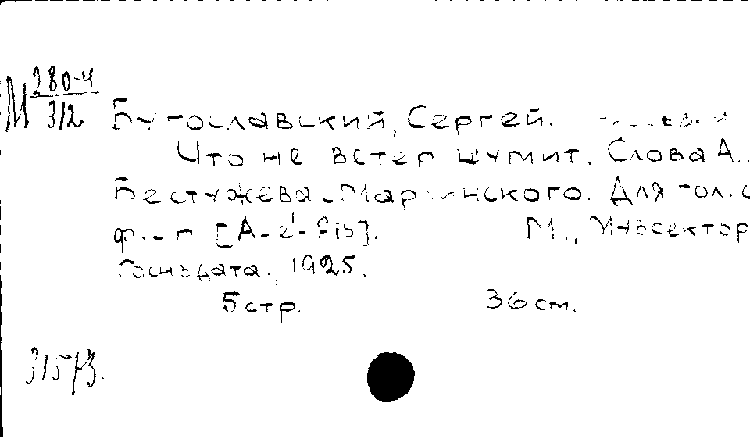 М 280-4
312
Бугославский, Сергей.
Что не ветер шумит. Слова А.
Бестужева-Марлинского. Для гол. с
ф.-п [А-е¹-fis]. М., Музсектор
Госиздата, 1925.
5 стр. 36 см.
31573.